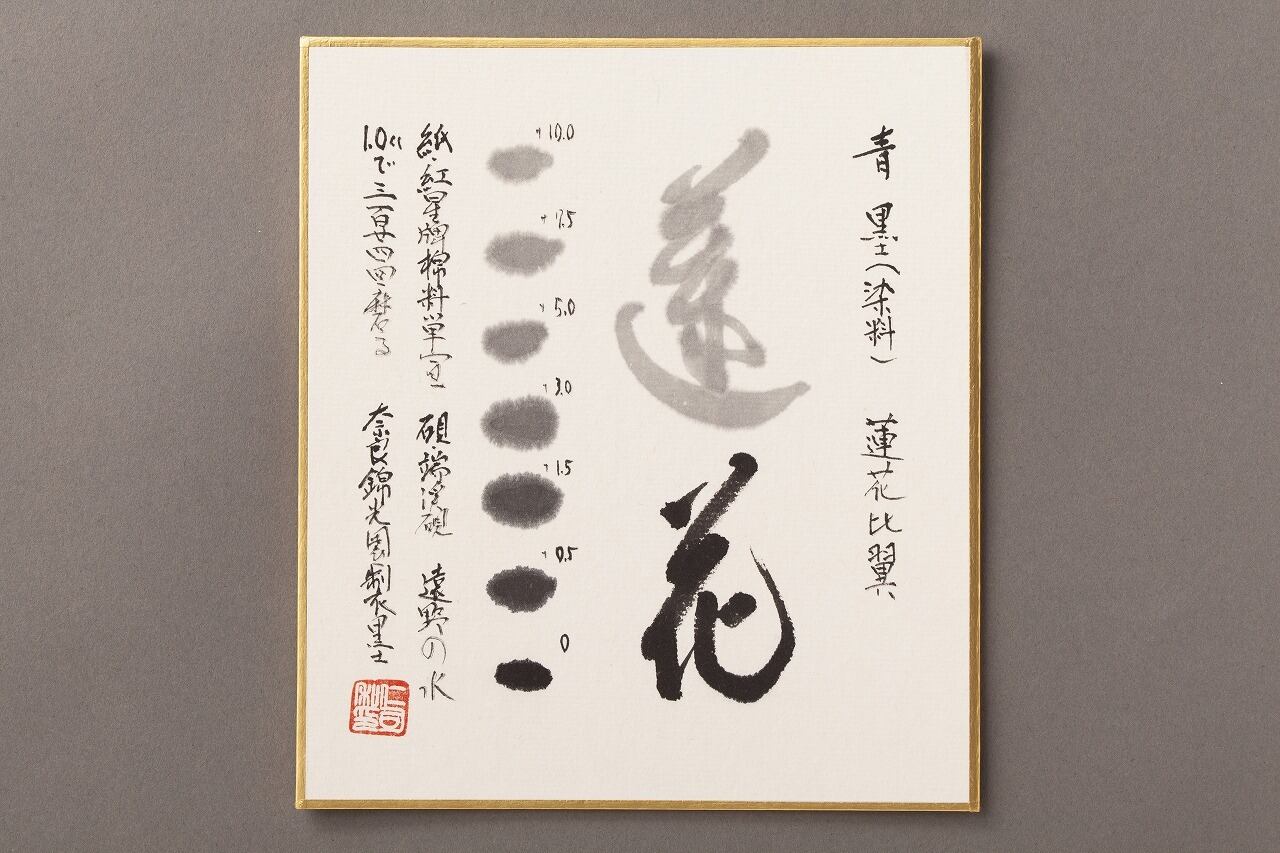 青墨（染料） 蓮花比翼
蓮花
+10.0
+7.5
+5.0
+3.0
+1.5
+0.5
0
紙・紅星牌棉料単宣 硯・端渓硯 遠野の水
1.0ccで三百廿四回磨る 奈良錦光園製衣墨